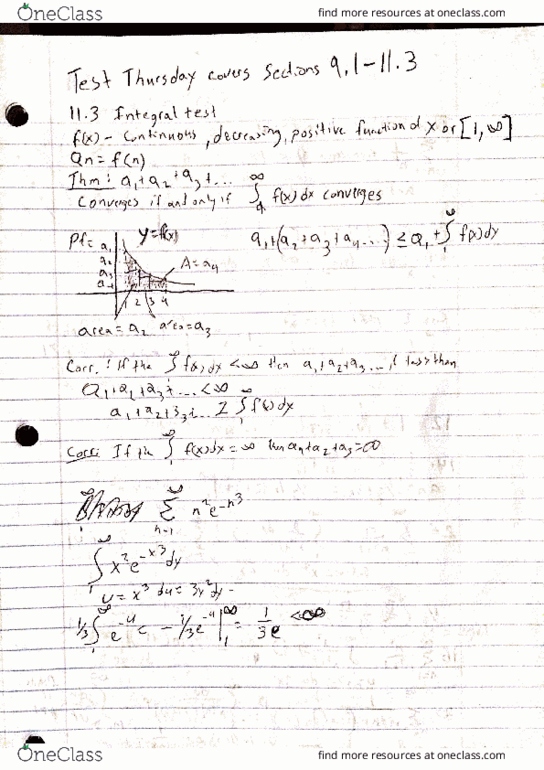 OneClass
find more resources at oneclass.com
Test Thursday covers Sections 9.1-11.3
11.3 Integral test
f(x) - continuous, decreasing, positive function of x or [1, ∞]
an = f(n)
Thm: a₁+a₂+a₃+...
Converges if and only if ∫ ∞ f(x)dx converges
Pf: y=f(x) a₁+(a₂+a₃+a₄...) ≤ a₁+∫₁^∞ f(x)dx
A=a₄
1 2 3 4
area=a₂ area=a₃
Corr.: If the ∫₁^∞ f(x)dx <∞ then a₁+a₂+a₃..., less than
a₁+a₂+a₃+... <∞
∫₁^∞ f(x)dx
If the ∫₁^∞ f(x)dx = ∞ then a₁+a₂+a₃=∞
∑ n=1 ∞ n²e^-n³
∫₁^∞ x²e^-x³dy
u=x³ du=3x²dy
1/3∫₁^∞ e^-u - 1/3e^-u |₁^∞ = 1/3e <∞
OneClass
find more resources at oneclass.com